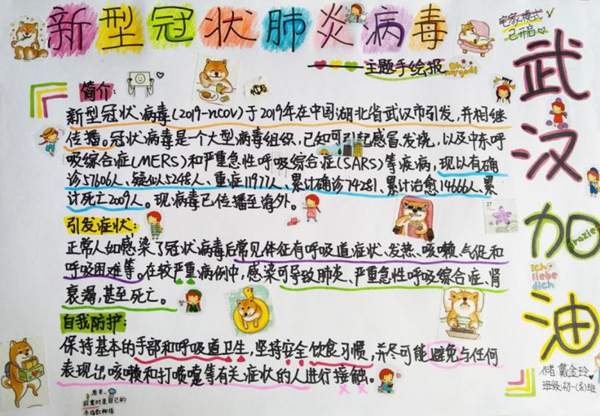 新型冠状肺炎病毒
主题手绘报
武汉加油
简介:
新型冠状病毒(2019-nCOV)于2019年在中国湖北省武汉市引发,并相继
传播。冠状病毒是一个大型病毒组织,已知可引起感冒发烧,以及中东呼
吸综合症(MERS)和严重急性呼吸综合症(SARS)等疾病,现以有确
诊57606人、疑似5248人、重症11977人、累计确诊74281、累计治愈14666人、累
计死亡2009人。现病毒已传播至海外。
引发症状:
正常人如感染了冠状病毒后常见体征有呼吸道症状、发热、咳嗽、气促和
呼吸困难等。在较严重病例中,感染可导致肺炎、严重急性呼吸综合症、肾
衰竭,甚至死亡。
自我防护:
保持基本的手部和呼吸道卫生,坚持安全饮食习惯,并尽可能避免与任何
表现出咳嗽和打喷嚏等有关症状的人进行接触。
Ich
liebe
dich
戴金玲